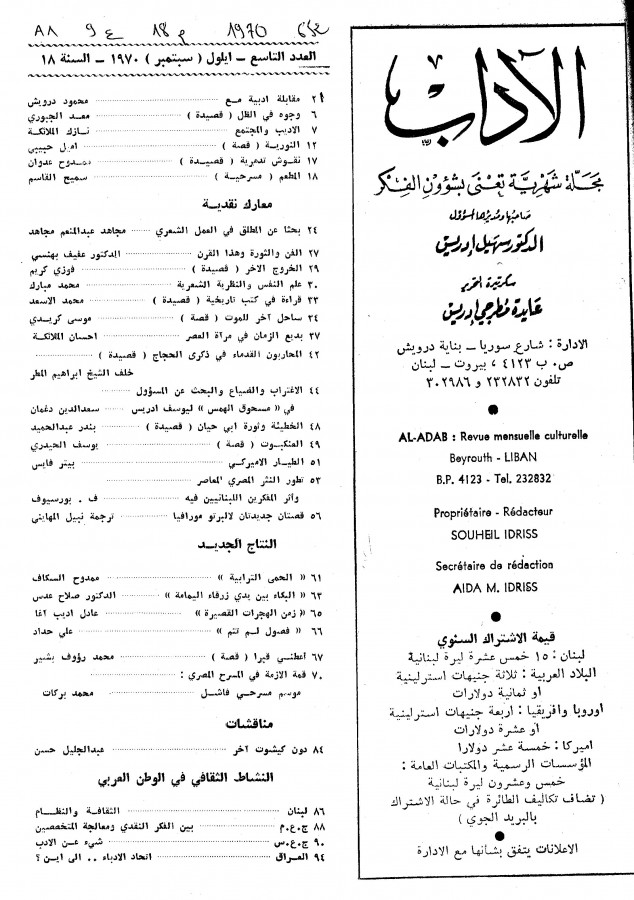 الآداب
مجلة شهرية تعنى بشؤون الفكر
صاحبها ومديرها المسؤول
الدكتور سهيل إدريس
سكرتيرة التحرير
عايدة مطرجي إدريس
الادارة : شارع سوريا – بناية درويش
ص. ب ٤١٢٣ ، بيروت – لبنان
تلفون ٢٣٢٨٣٢ و ٣٠٢٩٨٦
AL-ADAB : Revue mensuelle culturelle
Beyrouth - LIBAN
B.P. 4123 - Tel. 232832
Propriétaire - Rédacteur
SOUHEIL IDRISS
Secrétaire de rédaction
AIDA M. IDRISS
قيمة الاشتراك السنوي
لبنان : ١٥ خمس عشرة ليرة لبنانية
البلاد العربية : ثلاثة جنيهات استرلينية
او ثمانية دولارات
اوروبا وافريقيا : اربعة جنيهات استرلينية
او عشرة دولارات
اميركا : خمسة عشر دولارا
المؤسسات الرسمية والمكتبات العامة :
خمس وعشرون ليرة لبنانية
( تضاف تكاليف الطائرة في حالة الاشتراك
بالبريد الجوي )
الاعلانات يتفق بشأنها مع الادارة
A8 ع 9 م 18 1970
العدد التاسع – ايلول ( سبتمبر ) ١٩٧٠ – السنة ١٨
٢ مقابلة ادبية مع محمود درويش
٦ وجوه في الظل ( قصيدة ) معد الجبوري
٧ الاديب والمجتمع نازك الملائكة
١٢ النورية ( قصة ) اميل حبيبي
١٧ نقوش تدمرية ( قصيدة ) ممدوح عدوان
١٨ المطعم ( مسرحية ) سميح القاسم
معارك نقدية
٢٤ بحثا عن المطلق في العمل الشعري مجاهد عبدالمنعم مجاهد
٢٧ الفن والثورة وهذا القرن الدكتور عفيف بهنسي
٢٩ الخروج الاخر ( قصيدة ) فوزي كريم
٣٠ علم النفس والنظرية الشعرية محمد مبارك
٣٣ قراءة في كتب تاريخية ( قصيدة ) محمد الاسعد
٣٤ ساحل آخر للموت ( قصة ) موسى كريدي
٣٧ بديع الزمان في مرآة العصر احسان الملائكة
٤٢ المحاربون القدماء في ذكرى الحجاج ( قصيدة )
خلف الشيخ ابراهيم المطر
٤٤ الاغتراب والضياع والبحث عن المسؤول
في « مسحوق الهمس » ليوسف ادريس سعدالدين دغمان
٤٨ الخطيئة وثورة ابي حيان ( قصيدة ) بندر عبدالحميد
٤٩ العنكبوت ( قصة ) يوسف الحيدري
٥١ الطيار الاميركي بيتر فايس
٥٣ تطور النثر المصري المعاصر
وأثر المفكرين اللبنانيين فيه ف . بورسيوف
٥٦ قصتان جديدتان لالبرتو مورافيا ترجمة نبيل المهايني
النتاج الجديد
٦١ « الحمى الترابية » ممدوح السكاف
٦٣ « البكاء بين يدي زرقاء اليمامة » الدكتور صلاح عدس
٦٥ « زمن الهجرات القصيرة » عادل اديب آغا
٦٦ « فصول لم تتم » علي حداد
٦٧ أعطني قبرا ( قصة ) محمد رؤوف بشير
٧٠ قمة الازمة في المسرح المصري :
موسم مسرحي فاشل محمد بركات
مناقشات
٨٤ دون كيشوت آخر عبدالجليل حسن
النشاط الثقافي في الوطن العربي
٨٦ لبنان الثقافة والنظام
٨٨ ج.ع.م بين الفكر النقدي ومعالجة المتخصصين
٩٠ ج.ع.س شيء عن الادب
٩٤ العراق اتحاد الادباء .. الى اين ؟